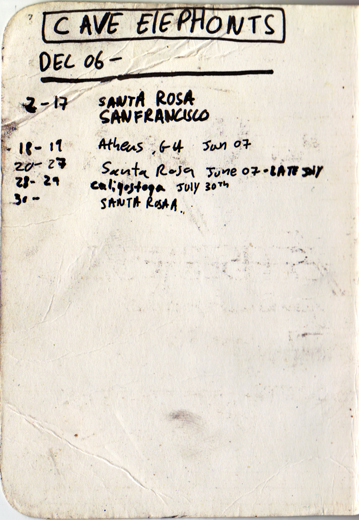 CAVE ElEPHONTS
DEC 06-
2-17 SANTA ROSA
SANFRANCISCO
18-19 Athens, G4 Jun 07
20-27 Santa Rosa June 07-LATE JULY
28-29 caligostoga JULY 30TH
30- SANTA ROSAA..